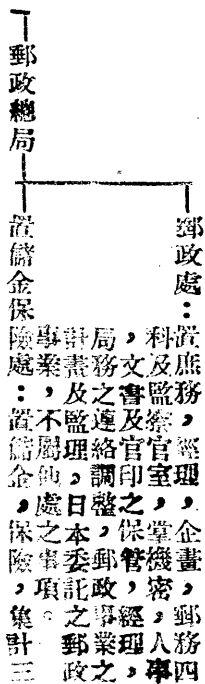 郵政總局
郵政處：置庶務，經理，企畫，郵務四
科及監察官室，掌機密，人事
，文書及官印之保管，經理，
局務之連絡調整，郵政事業之
計畫及監理，日本委託之郵政
事業，不屬他處之事項。
置儲金保險處：置儲金，保險，集計三